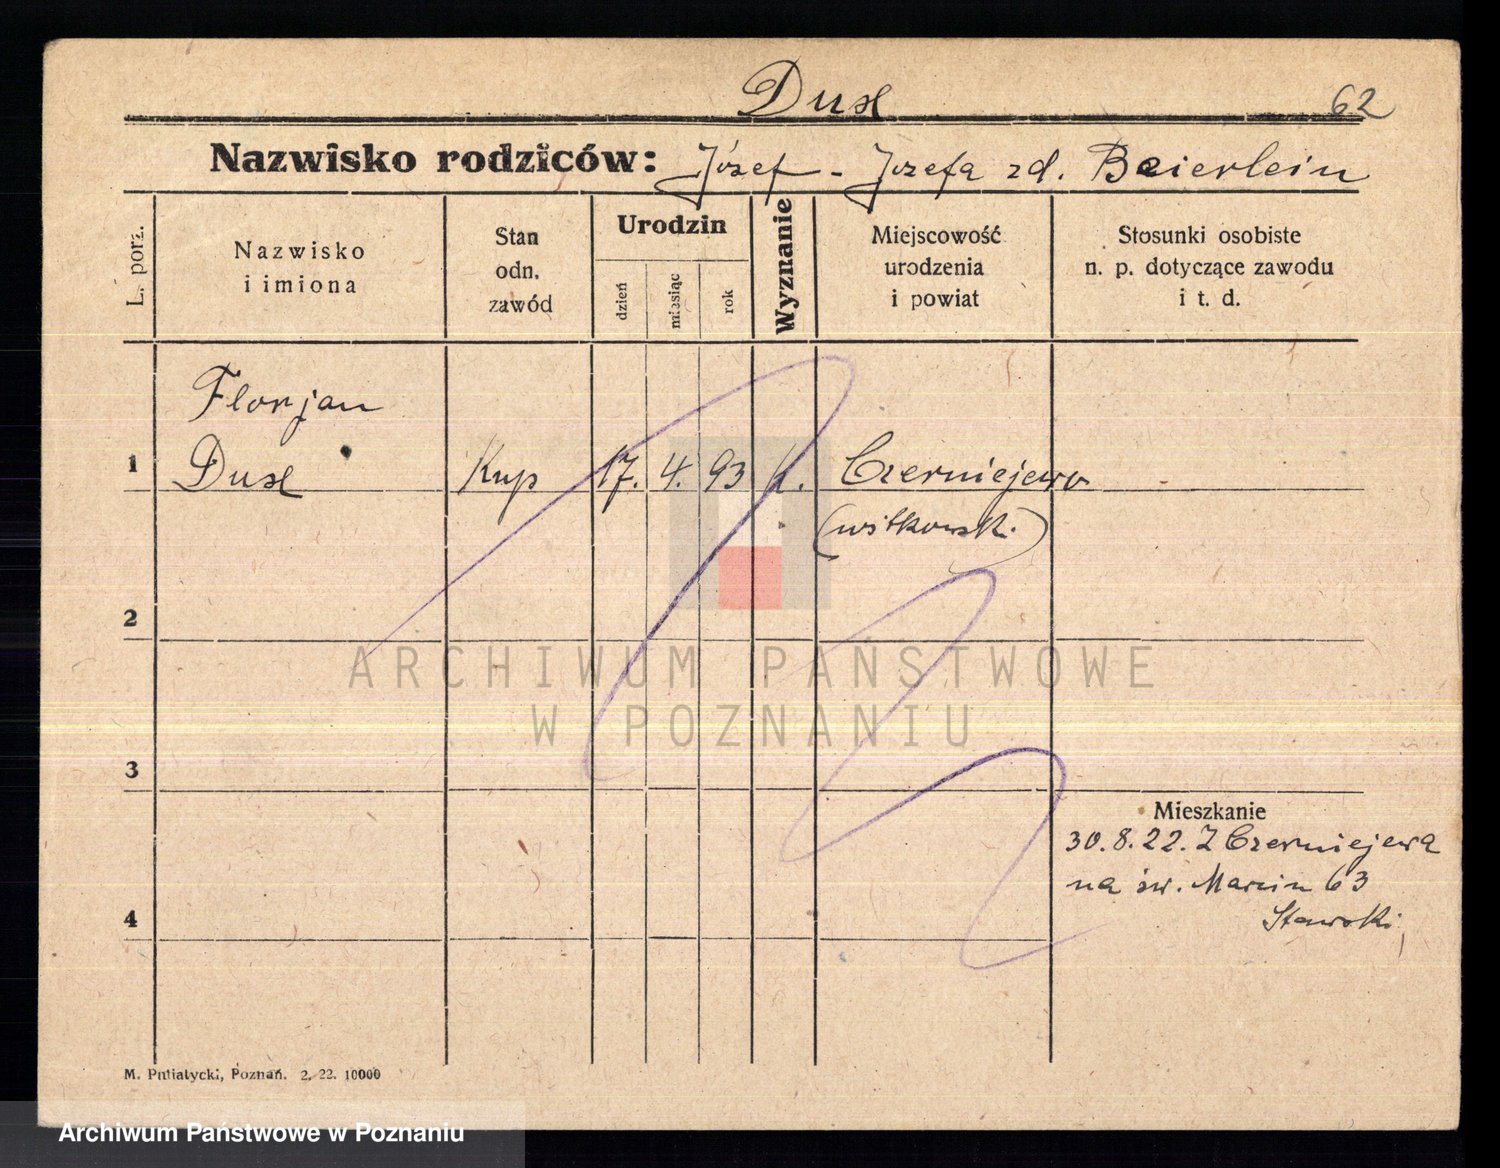 Dux
62
Nazwisko rodziców: Józef - Jozefa zd. Beierlein
L. porz.
Nazwisko
i imiona
Stan
odn.
zawód
Urodzin
dzień
miesiąc
rok
Wyznanie
Miejscowość
urodzenia
i powiat
Stosunki osobiste
n. p. dotyczące zawodu
i t. d.
Florjan
1 Dux Kup 17. 4. 93 k. Czerniejewo
(witkowski)
2
3
Mieszkanie
30.8.22. Z Czerniejewa
na św. Marcin 63
4
M. Putiatycki, Poznań. 2. 22. 10000
ARCHIWUM PAŃSTWOWE
W POZNANIU
Archiwum Państwowe w Poznaniu